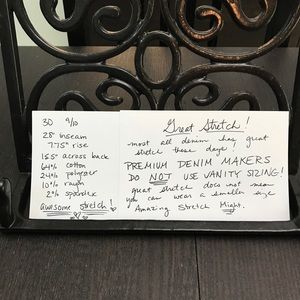 30 9/10
28" inseam
7.75" rise
15.5 across back
64% cotton
24% polyester
10% rayon
2% spandex
awesome stretch!
Great Stretch!
most all denim has great
stretch these days!
PREMIUM DENIM MAKERS
DO NOT USE VANITY SIZING!
great stretch does not mean
you can wear a smaller size
Amazing Stretch Might.